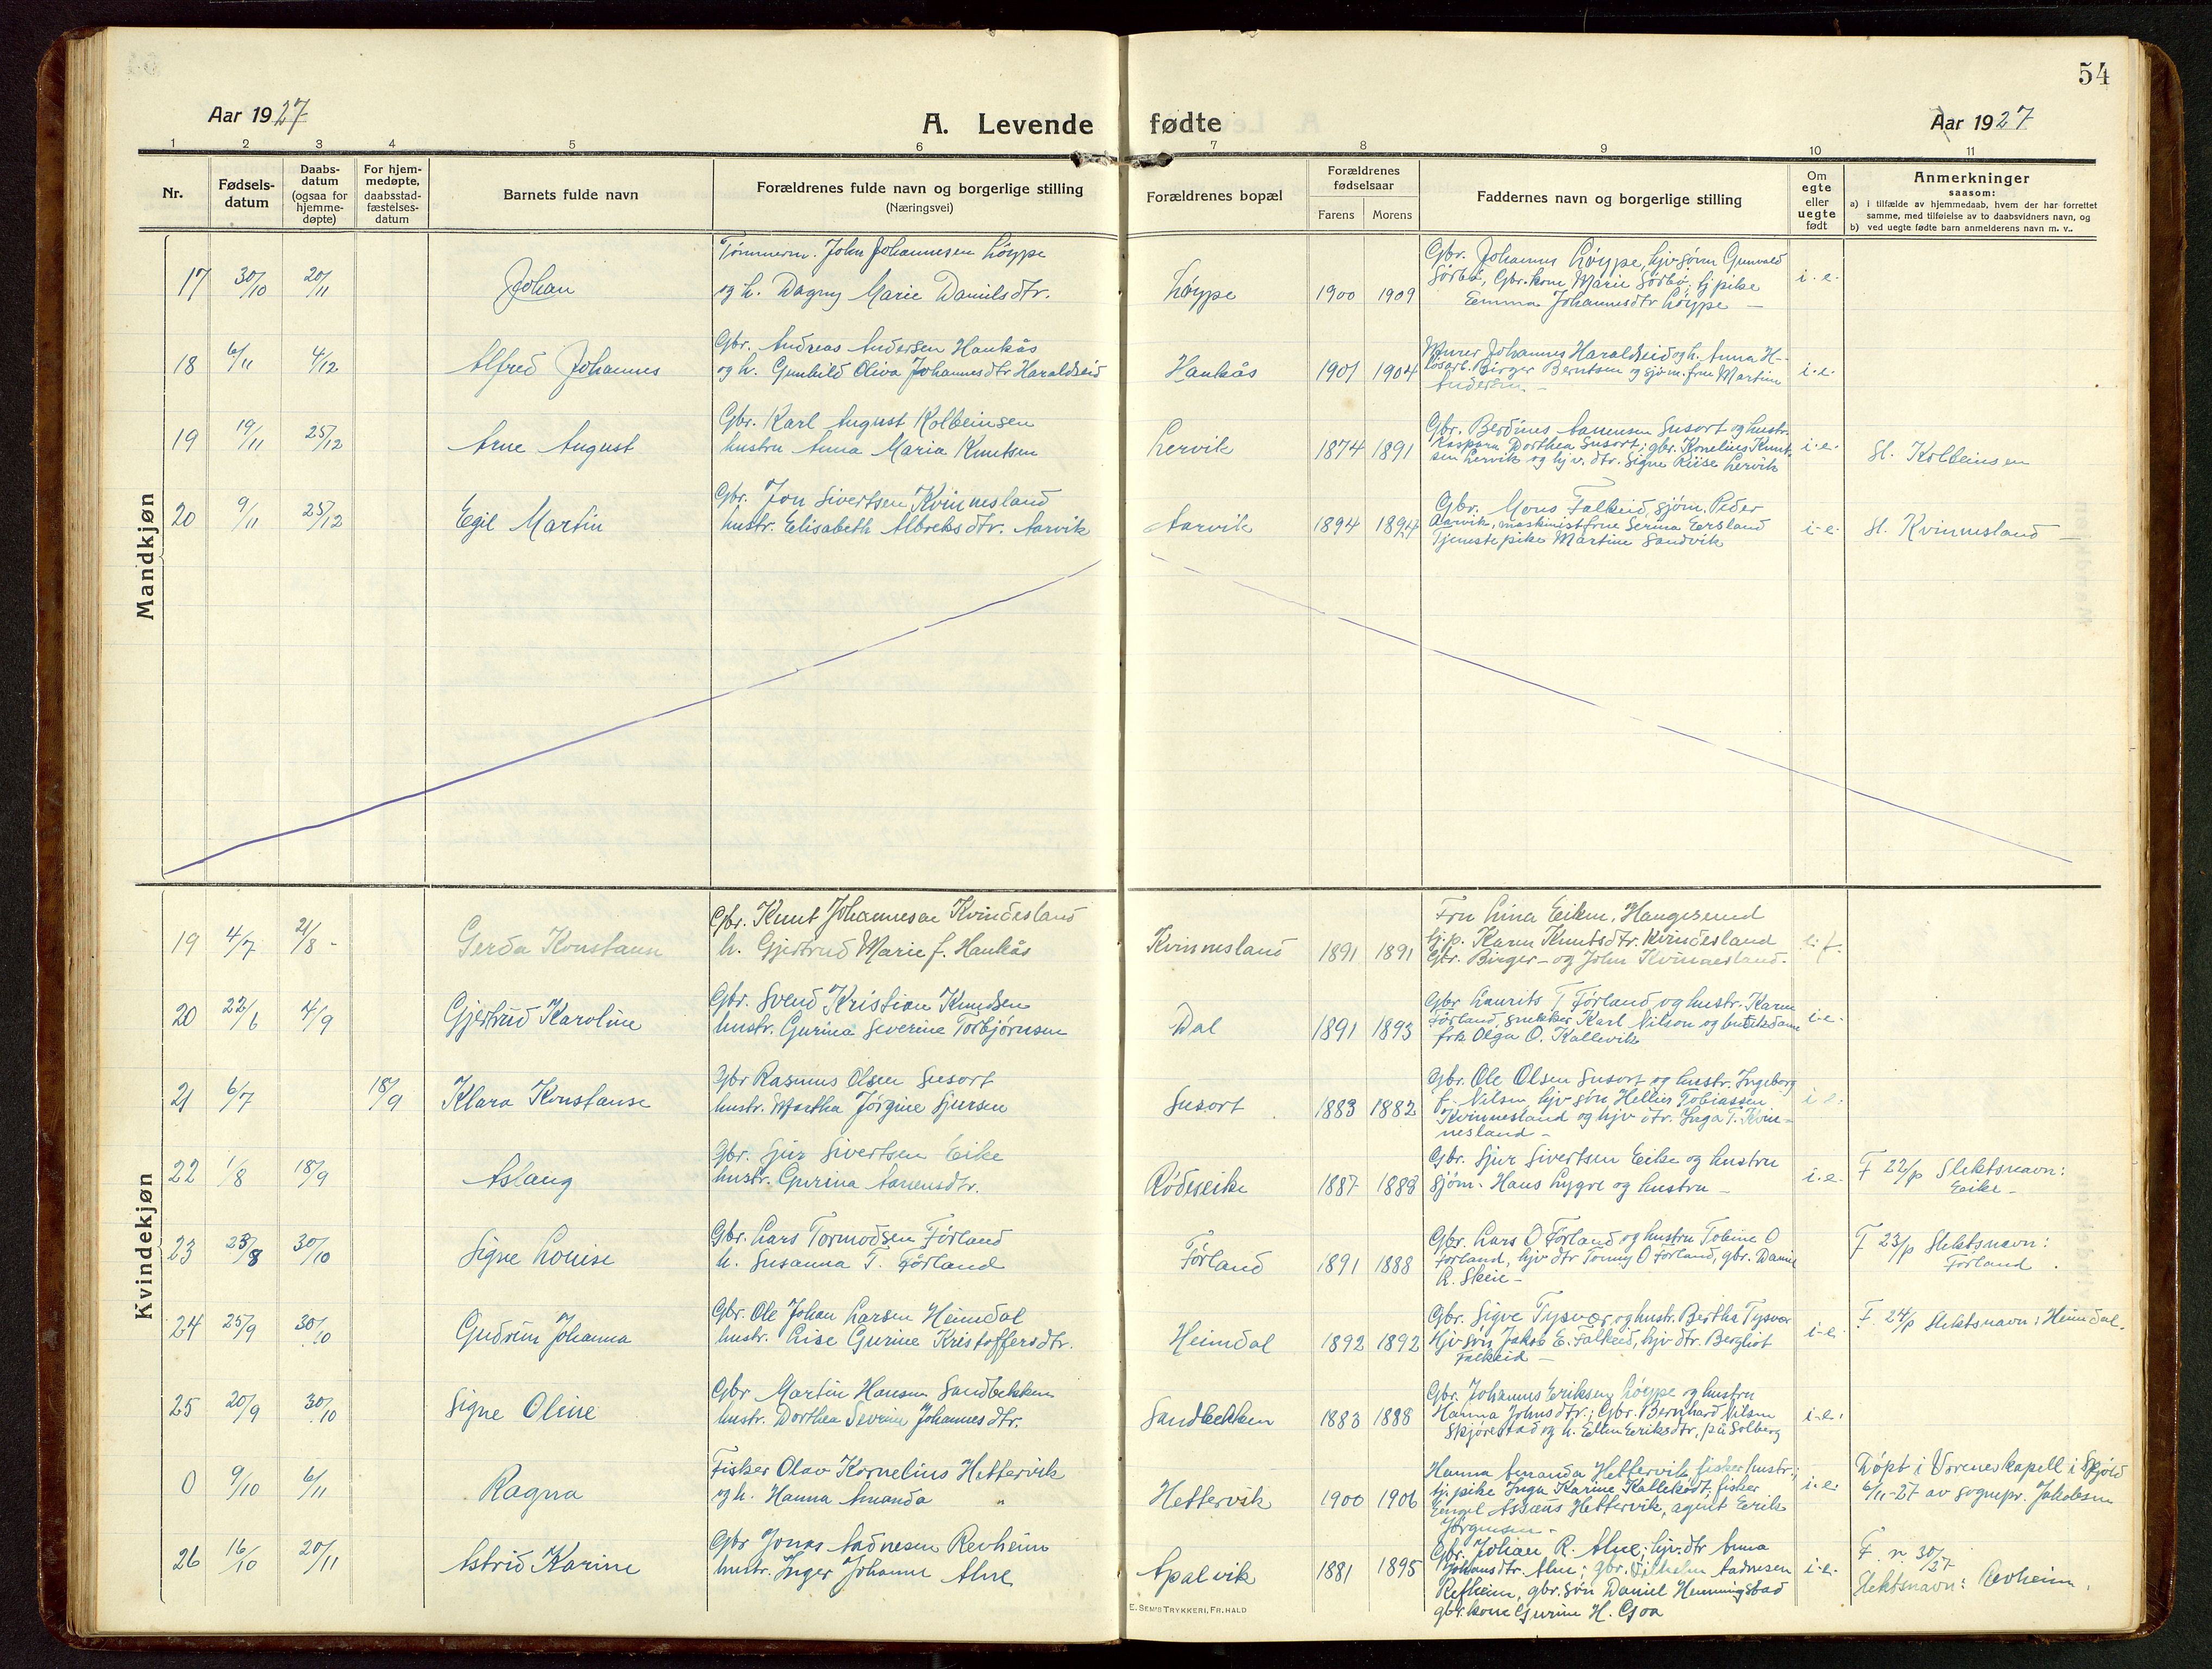 54
Aar 1927
A. Levende fødte
Aar 1927
1 2 3 4 5 6 7 8 9 10 11
Nr.
Fødsels-
datum
Daabs-
datum
(ogsaa for
hjemme-
døpte)
For hjem-
medøpte,
daabsstad-
fæstelses-
datum
Barnets fulde navn
Forældrenes fulde navn og borgerlige stilling
(Næringsvei)
Forældrenes bopæl
Forældrenes
fødselsaar
Farens Morens
Faddernes navn og borgerlige stilling
Om
egte
eller
uegte
født
Anmerkninger
saasom:
a) i tilfælde av hjemmedaab, hvem der har forrettet
samme, med tilføielse av to daabsvidners navn, og
b) ved uegte fødte barn anmelderens navn m. v..
Mandkjøn
17 30/10 20/11 Johan
Tømmerm. John Johannesen Løyppe
og h. Dagny Marie Danielsdtr.
Løyppe 1900 1909
Gbr. Johannes Løyppe, hjv sønn Gunvald
Sørbø, Gbr. kone Marie Sørbø, tj pike
Emma Johannesdtr Løyppe —
i. e.
18 6/11 4/12 Alfred Johannes
Gbr. Andreas Andersen Haukås
og h. Gunhild Oliva Johannesdtr Haraldseid
Haukås 1901 1904
Murer Johannes Haraldseid og h. Anna H-
løsarb. Birger Berntsen og sjøm. frue Martine
Andersen —
i. e.
19 19/11 25/12 Arne August
Gbr. Karl August Kolbeinsen
hustru Anna Maria Knutsen
Lervik 1874 1891
Gbr. Berdines Aanensen Susort og hustr.
Kaspara Dorthea Susort; gbr. Kornelius Knut
sen Lervik og hjv. dtr. Signe Riise Lervik
i. e.
Sl. Kolbeinsen
20 9/11 25/12 Egil Martin
Gbr. Jon Sivertsen Kvinnesland
hustr. Elisabeth Albreksdtr. Aarvik
Aarvik 1894 1894
Gbr. Mons Falkeid, sjøm. Peder
Aarvik, maskinistfrue Serina Eersland
Tjenestepike Martine Sandvik
i-e.
Sl. Kvinnesland —
Kvindekjøn
19 4/7 21/8 - Gerda Konstanse
Gbr. Knut Johannesen Kvindesland
h. Gjertrud Marie f. Haukås
Kvinnesland 1891 1891
Fru Lina Eiken, Haugesund
tj. p. Karen Knutsdtr. Kvindesland
Gbr. Birger - og John Kvinnesland.
20 22/6 4/9 Gjertrud Karoline
Gbr. Svend Kristian Knudsen
hustr. Gurina Severine Torbjørnsen
Dal 1891 1893
Gbr Laurits T Førland og hustr. Karen
Førland, snekker Karl Nilson og butikdame
frk Olga O. Kallevik
i-e.
21 6/7 18/9 Klara Konstanse
Gbr Rasmus Olsen Susort
hustr. Martha Jørgine Sjursen
Susort 1883 1882
Gbr. Ole Olsen Susort og hustr. Ingeborg
f. Nilsen, hjv søn Hellies Tobiassen
Kvinnesland og hjv dtr. Inga T. Kvin-
nesland —
i e.
22 1/8 18/9 Aslaug
Gbr. Sjur Sivertsen Eike
hustr. Gurina Aanensdtr.
Rødseike 1887 1883
Gbr. Sjur Sivertsen Eike og hustru
Sjøm. Hans Lygre og hustru —
i. e.
F 22/p Slektsnavn:
Eike —
23 23/8 30/10 Signe Louise
Gbr. Lars Tormodsen Førland
h. Susanna T. Førland
Førland 1891 1888
Gbr. Lars O Førland og hustru Tobine O
Førland, hjv dtr Tonny O Førland, gbr. Daniel
R. Skeie —
F 23/p Slektsnavn:
Førland.
24 25/9 30/10 Gudrun Johanna
Gbr. Ole Johan Larsen Heimdal
hustr. Lise Gurine Kristoffersdtr.
Heimdal 1892 1892
Gbr. Sigve Tysvær og hustr. Bertha Tysvær
Hjv søn Jakob E. Falkeid, hjv dtr. Bergliot
Falkeid —
i-e.
F. 24/p Slektsnavn: Heimdal.
25 20/9 30/10 Signe Oline
Gbr Martin Hansen Sandbekken
hustr. Dorthea Severine Johannesdtr.
Sandbekken 1883 1888
Gbr. Johannes Eriksen Løyppe og hustru
Hanna Johnsdtr.; Gbr. Bernhard Nilsen
Skjørestad og h. Ellen Eriksdtr, på Solberg
i-e.
0 9/10 6/11 Ragna
Fisker Olav Kornelius Hettervik
og h. Hanna Amanda "
Hettervik 1900 1906
Hanna Amanda Hettervik, fisker hustr.;
tj. pike Inga Karine Kallekodt, fisker
Eengel Assæus Hettervik, agent Eerik
Jørgensen —
i-e.
Døpt i Vornes kapell i Skjold
6/11-27 av sognepr. Jakobsen
26 16/10 20/11 Astrid Karine
Gbr Jonas Aadnesen Revheim
hustr. Inger Johanne Alne
Apalvik 1881 1895
Gbr. Johan R. Alne; hjv. dtr Anna
Johansdtr. Alne; gbr. Vilhelm Aadnesen
Refheim, gbr. søn Daniel Hemmingstad
gbr. kone Gurine H. Gjoa
i-e.
F. n 30/27
Slektsnavn: Revheim.
E. SEM'S TRYKKERI, FR.HALD